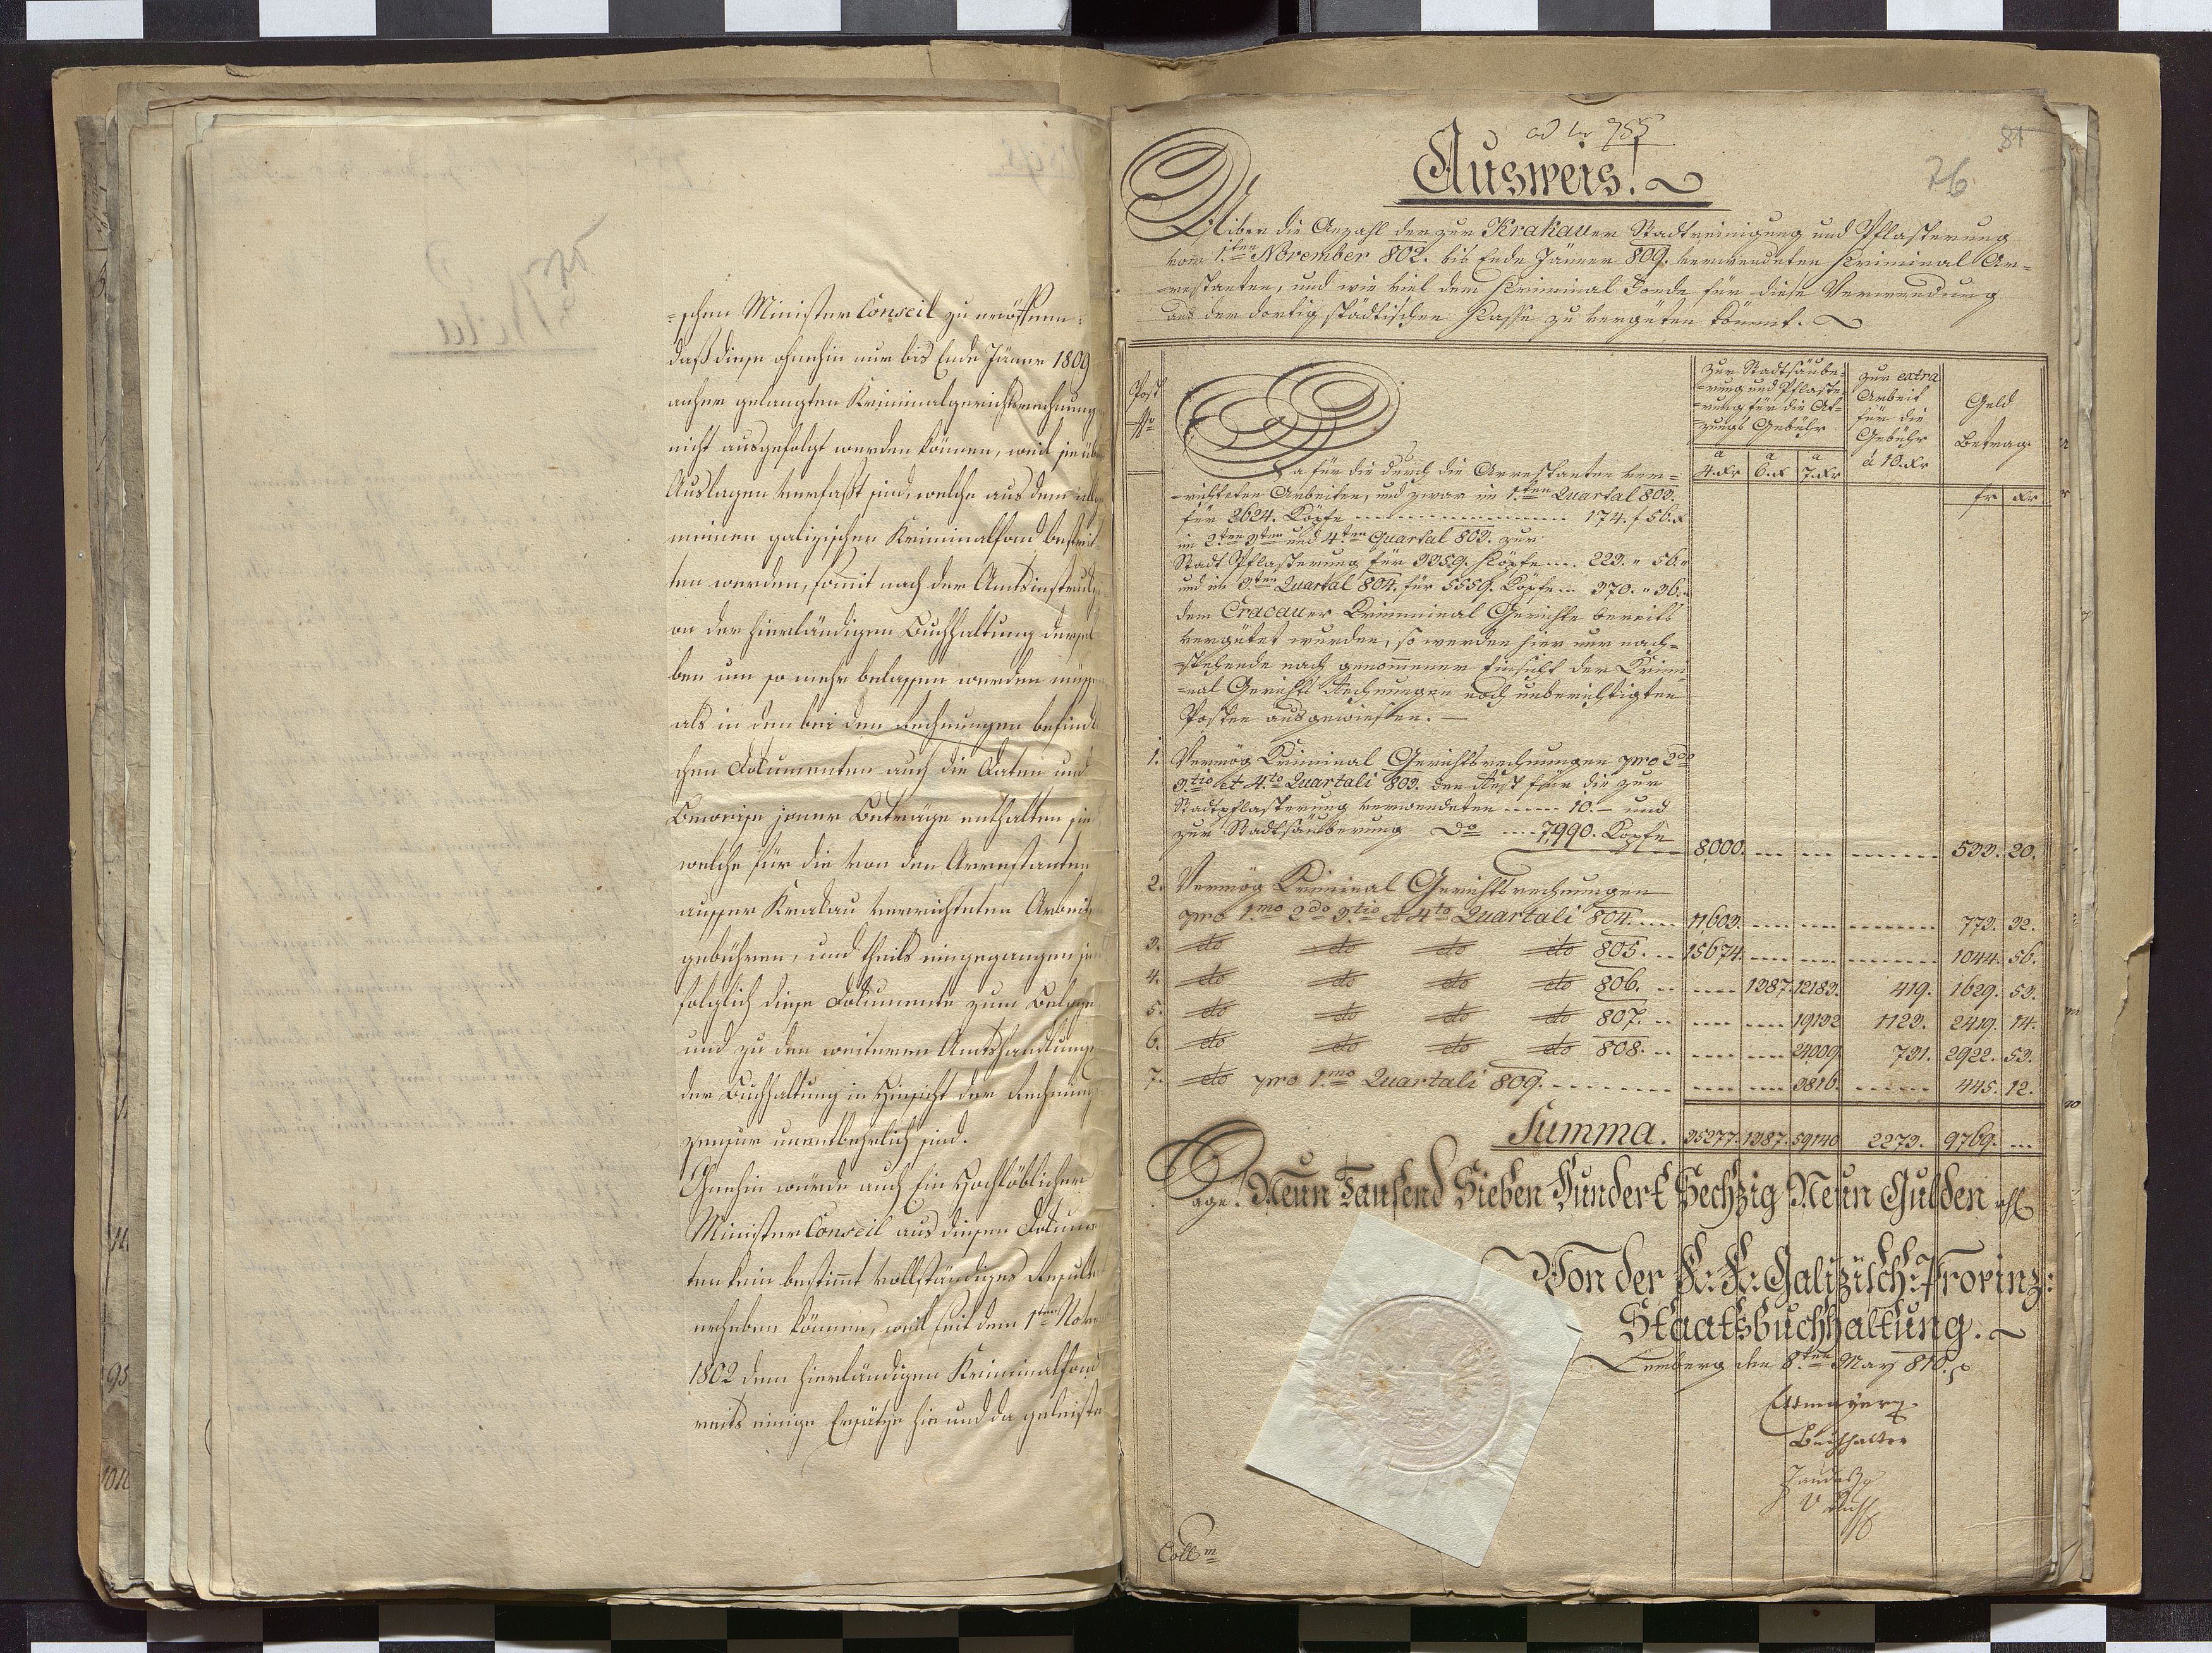 =schen Minister Conseil zu eröffnen:
daß diese ohnehin nur bis Ende Jänner 1809
anher gelangten Kriminalgerichtsrechnung
nicht ausgefolgt werden können, weil sie üb
Auslagen verfaßt sind, welche aus dem allge
meinen galizischen Kriminalfond bestrit
ten werden, somit nach der Amtsinstrukzi
on der hierländigen Buchhaltung dersel
ben um so mehr belassen werden müssen
als in den bei den Rechnungen befindli
chen Dokumenten auch die Daten und
Beweise jener Beträge enthalten sind
welche für die von den Arrestanten
ausser Krakau verrichteten Arbeiten
gebühren, und theils eingegangen sind
folglich diese Dokumente zum Belege
und zu den weiteren Amtshandlungen
der Buchhaltung in Hinsicht der Rechnungs
zensur unentbehrlich sind.
Ohnehin würde auch Ein Hochlöblicher
Minister Conseil aus diesen Dokumen
ten kein bestimmt vollständiges Resultat
erheben können, weil seit dem 1ten Nove
1802 dem hierländigen Kriminalfond
reits einige Ersätze hie und da geleistet
ad Nr 955
81
76
Ausweis!
Uiber die Anzahl der zur Krakauer Stadtreinigung und Pflasterung
vom 1ten November 802. bis Ende Jänner 809. verwendeten Kriminal Ar=
=restanten, und wie viel dem Kriminal Fonde für diese Verwendung
aus der dortig städtischen Kasse zu vergüten kömmt.
Post
Nro
Zur Stadtsäube=
=rung und Pflaste=
=rung für die At=
=zungs Gebühr
a 4.Kr a 6.K a 7.Kr
Zur extra
Arbeit
für die
Gebühr
à 10.Kr
Geld
Betrag
fr Kr
Da für die durch die Arrestanten ver=
=richteten Arbeiten, und zwar im 1.ten Quartal 803.
für 2624. Köpfe 174. f 56.K
im 2ten 3ten und 4ten Quartal 803. zur
Stadt Pflasterung für 3359. Köpfe 223. " 56."
und im 3ten Quartal 804. für 5559. Köpfe 370. " 36."
dem Cracauer Kriminal Gerichte bereits
vergütet wurden, so werden hier nur nach=
=stehende nach genommener Einsicht der Krimi=
=nal Gerichts Rechnungen noch unberichtigten
Posten ausgewiesen.
1. Vermög Kriminal Gerichtsrechnungen pro 2do
3tio et 4.to Quartali 803. den Rest für die zur
Stadtpflasterung verwendeten 10.- und
zur Stadtsäuberung Do 7,990. Köpfe 8,000. 533. 20.
2. Vermög Kriminal Gerichtsrechnungen
pro 1.mo 2do 3.tio et 4to Quartali 804. 11,603. 773. 32.
3. dto dto dto dto 805. 15674. 1044. 56.
4. dto dto dto dto 806. 1387. 12183. 419. 1629. 53.
5. dto dto dto dto 807. 19132 1123. 2419. 14.
6. dto dto dto dto 808. 24009. 731. 2922. 53.
7. dto pro 1.mo Quartali 809. 3816. 445. 12.
Summa. 35277. 1387. 59140 2273. 9769. ...
Sage! Neun Tausend Sieben Hundert Sechzig Neun Gulden
Von der K: K: Galizisch: Provinz:
Staatsbuchhaltung.
Lemberg den 8.ten May 810.
Buchhalter
Coll m